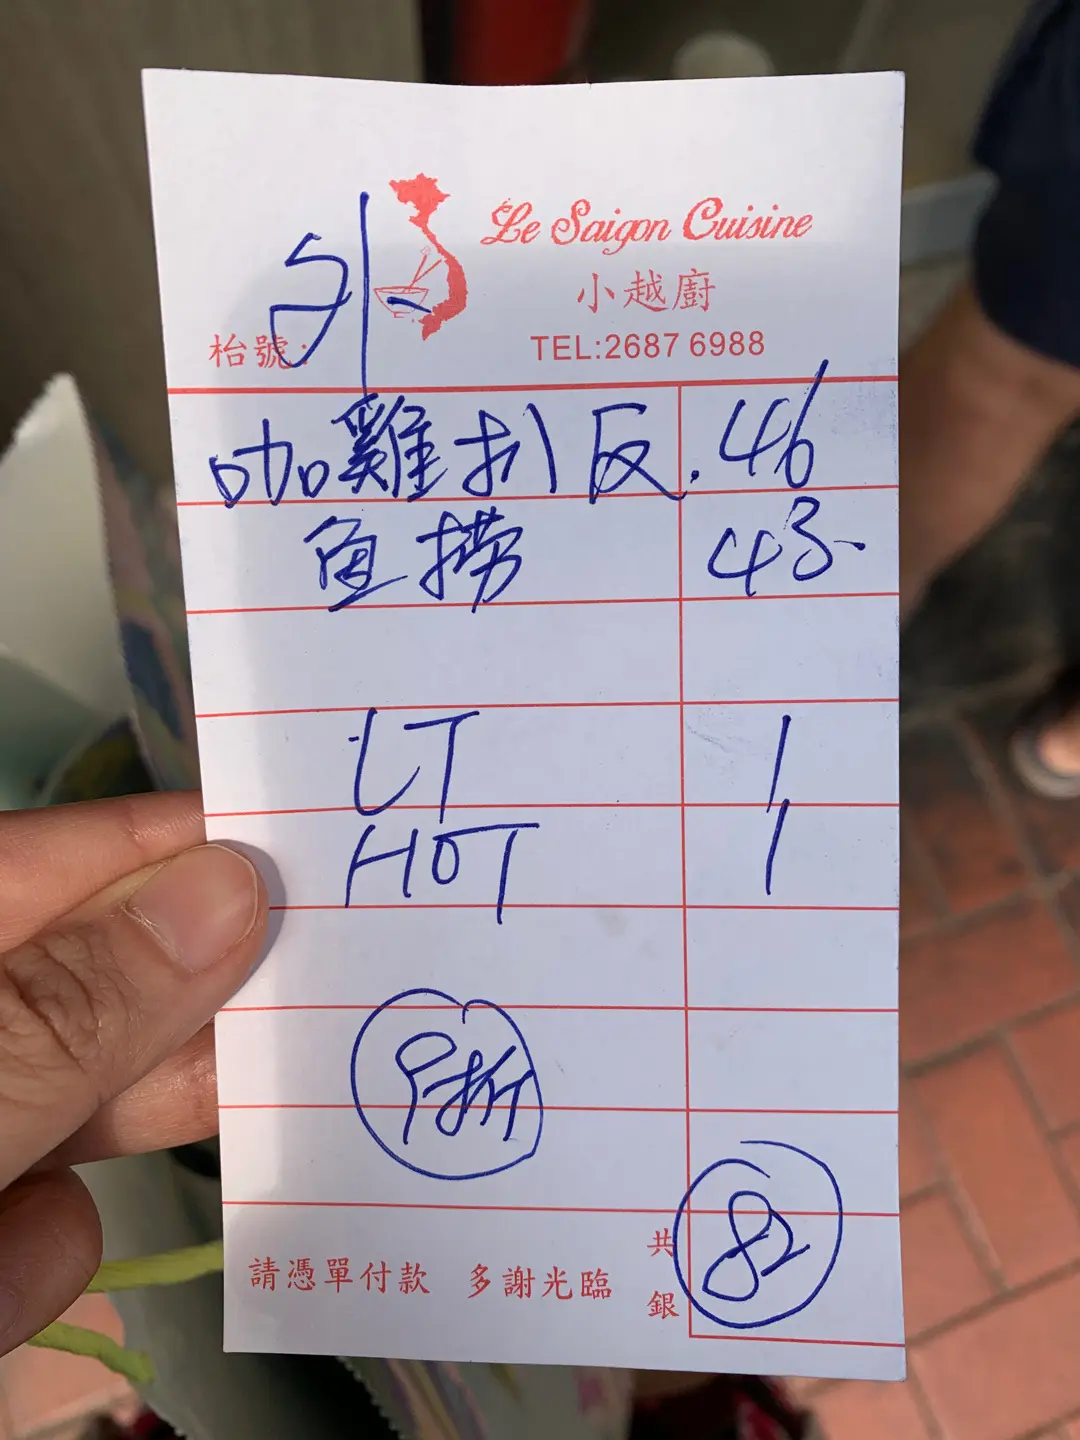 Le Saigon Cuisine
小越廚
枱號:
TEL:2687 6988
咖雞扒反. 46
魚撈 43.
LT 1
HOT 1
9折
82
共銀
請憑單付款 多謝光臨